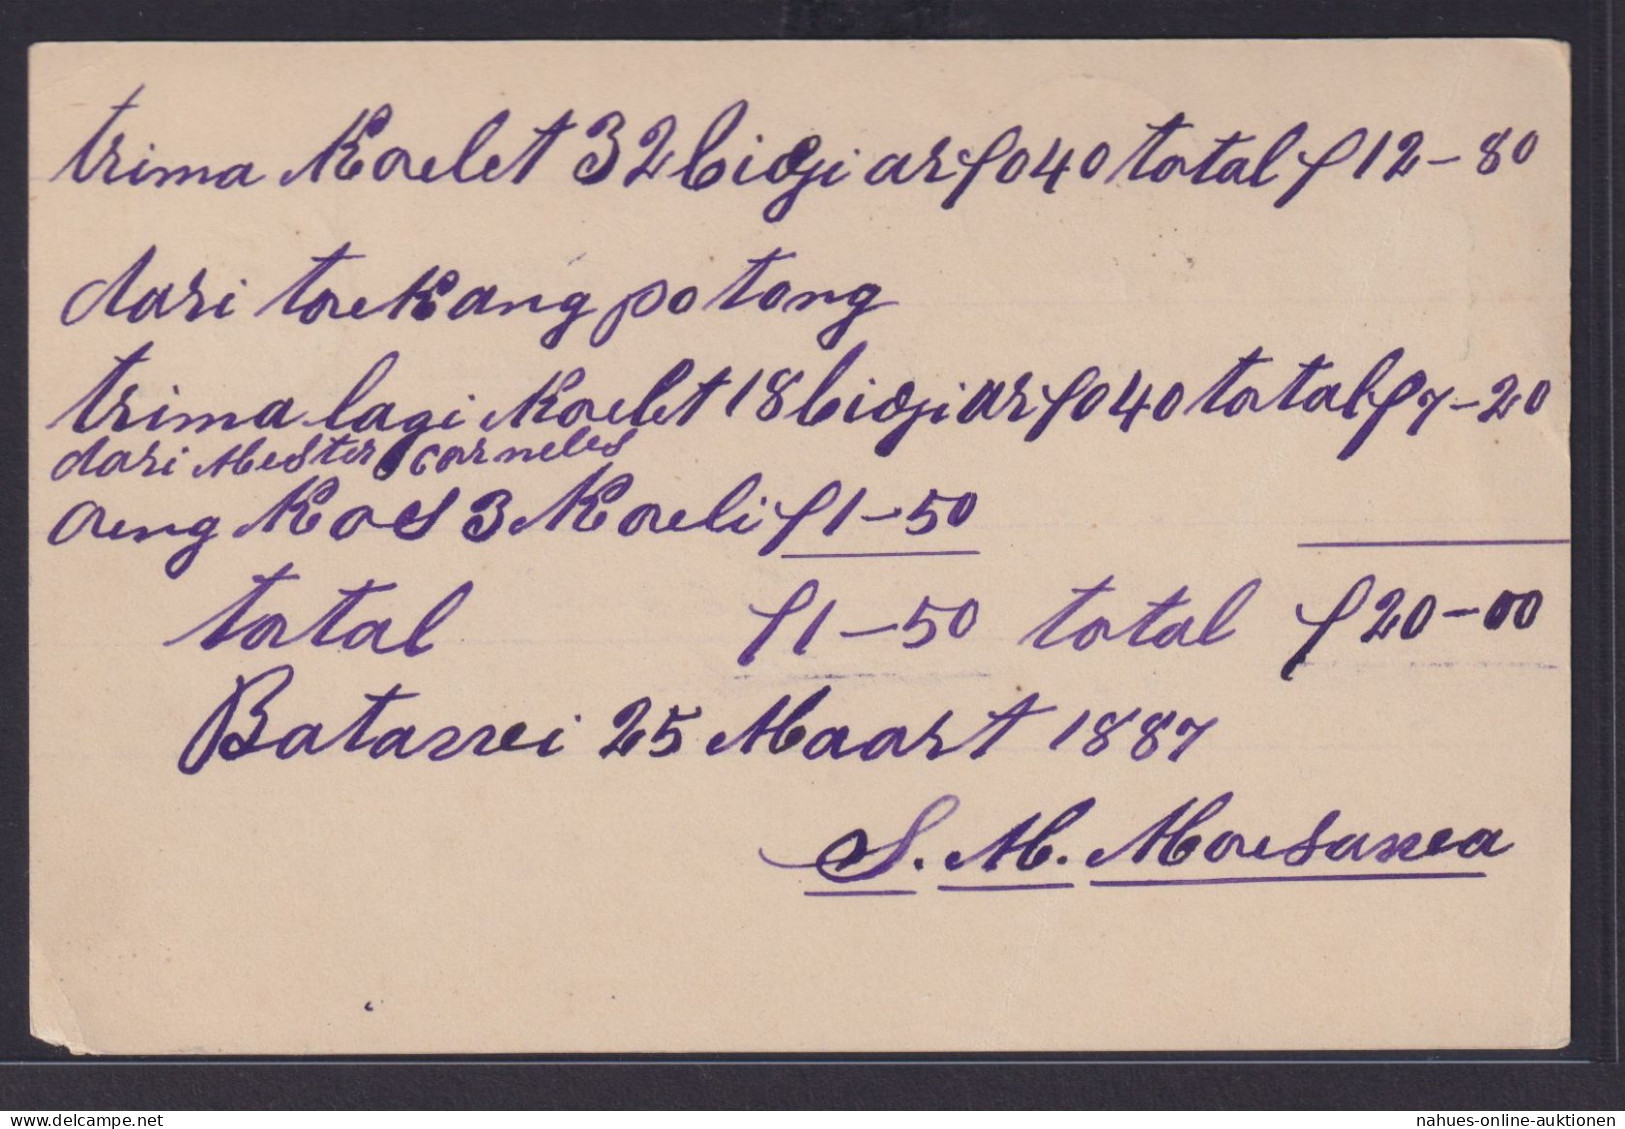 trima Koelet 32 bidji ar f 0 40 total f 12-80
dari toekang potong
trima lagi Koelet 18 bidji ar f 0 40 total f 7-20
dari Mester Corneles
oeng Kos 3 Koeli f 1-50
total f 1-50 total f 20-00
25 Maart 1887
S. M.
nahues-online-auktionen